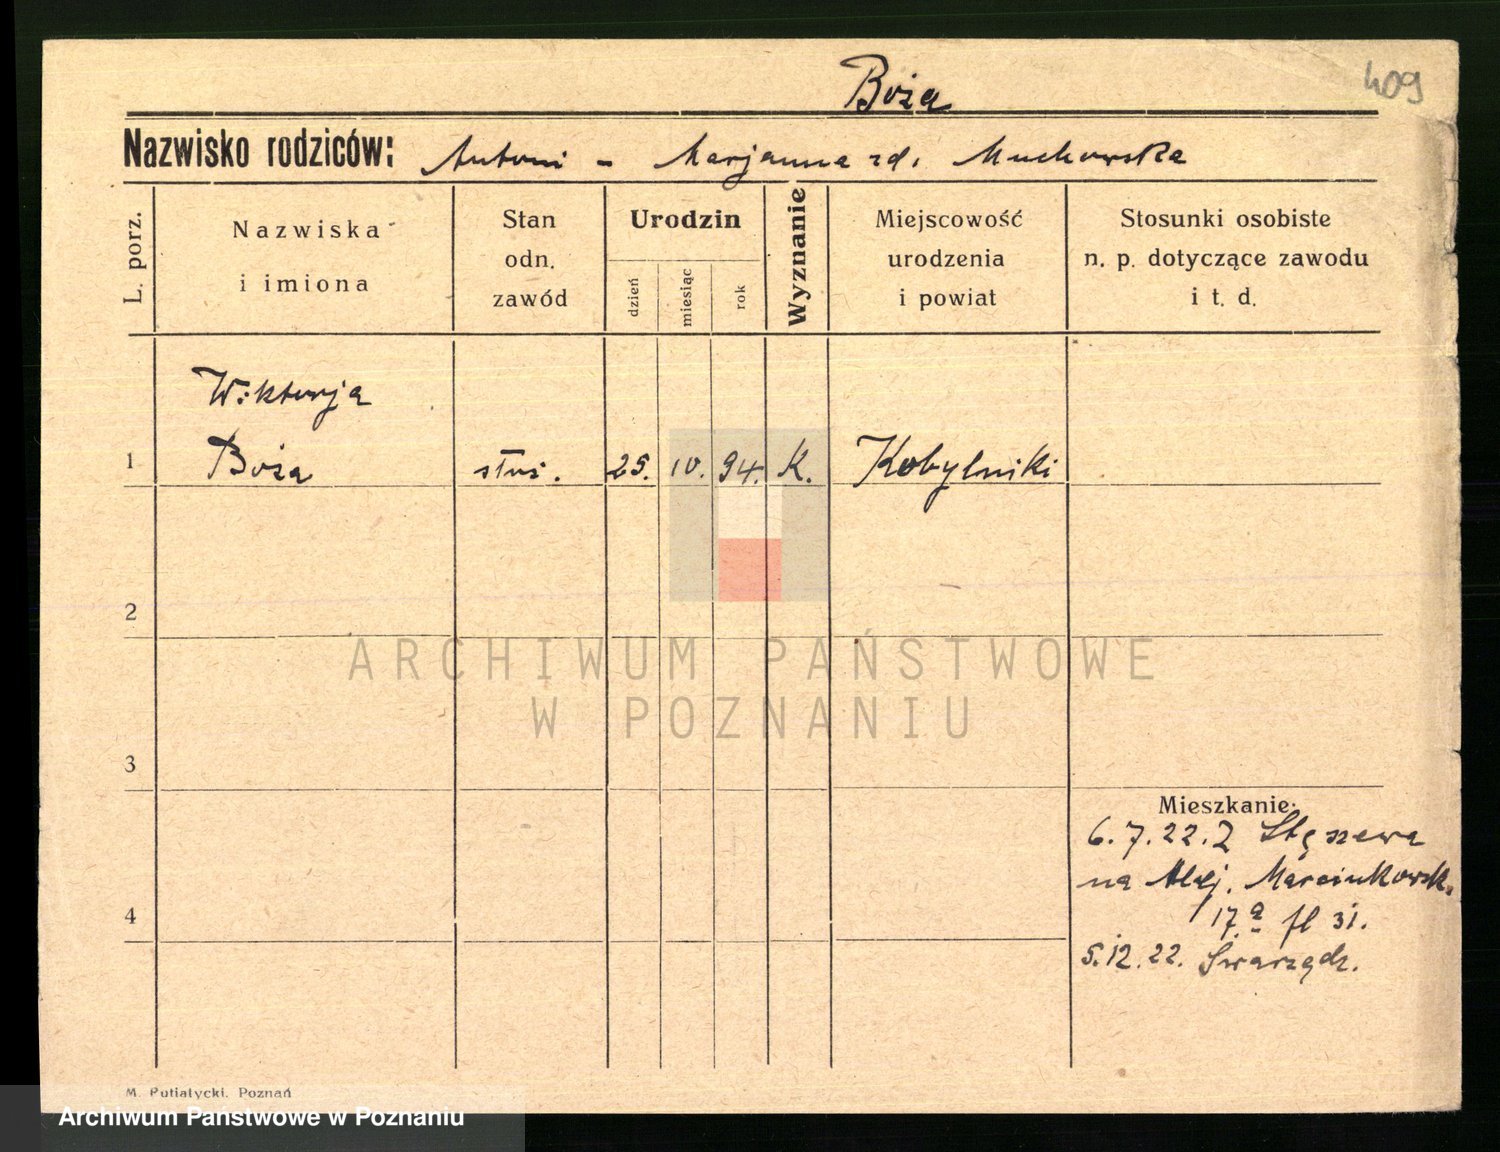 Boża
409
Nazwisko rodziców: Antoni - Marjanna zd. Muchowska
L. porz.
Nazwiska
i imiona
Stan
odn.
zawód
Urodzin
dzień
miesiąc
rok
Wyznanie
Miejscowość
urodzenia
i powiat
Stosunki osobiste
n. p. dotyczące zawodu
i t. d.
Wiktorja
1 Boża służ. 25. 10. 94. K. Kobylniki
2
ARCHIWUM PAŃSTWOWE
W POZNANIU
3
Mieszkanie:
6.7.22. Z Stęszewa
na Alej. Marcinkowsk.
4
17.a fl 31.
5.12.22. Swarzędz.
M. Putiatycki, Poznań
Archiwum Państwowe w Poznaniu